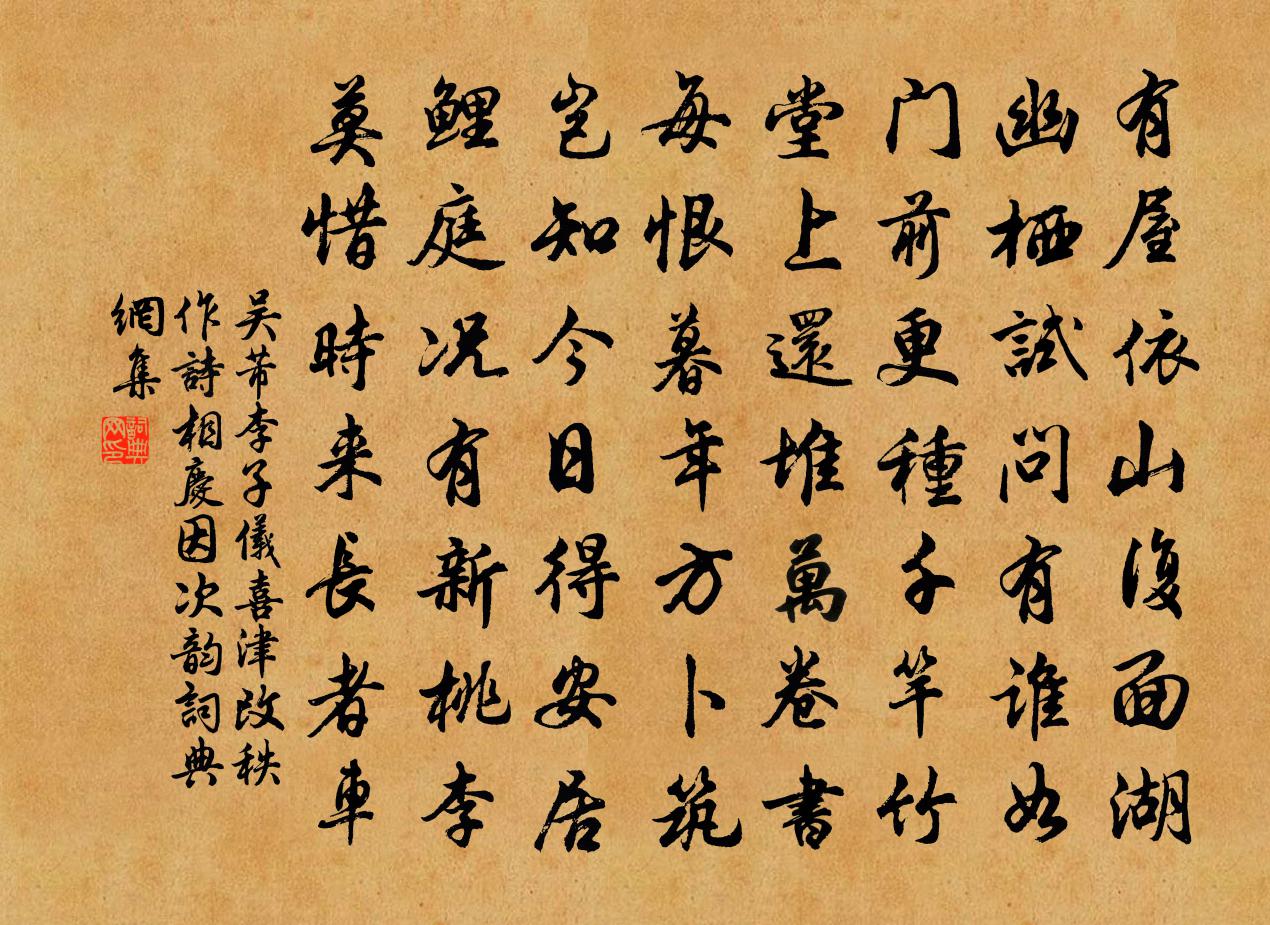 有屋依山復面湖
幽栖試問有誰如
门前更種千竿竹
堂上還堆萬卷書
每恨暮年方卜筑
岂知今日得安居
鲤庭况有新桃李
莫惜時来長者車
吴芾李子儀喜津改秩
作詩相慶因次韵詞典
網集
詞典
网印